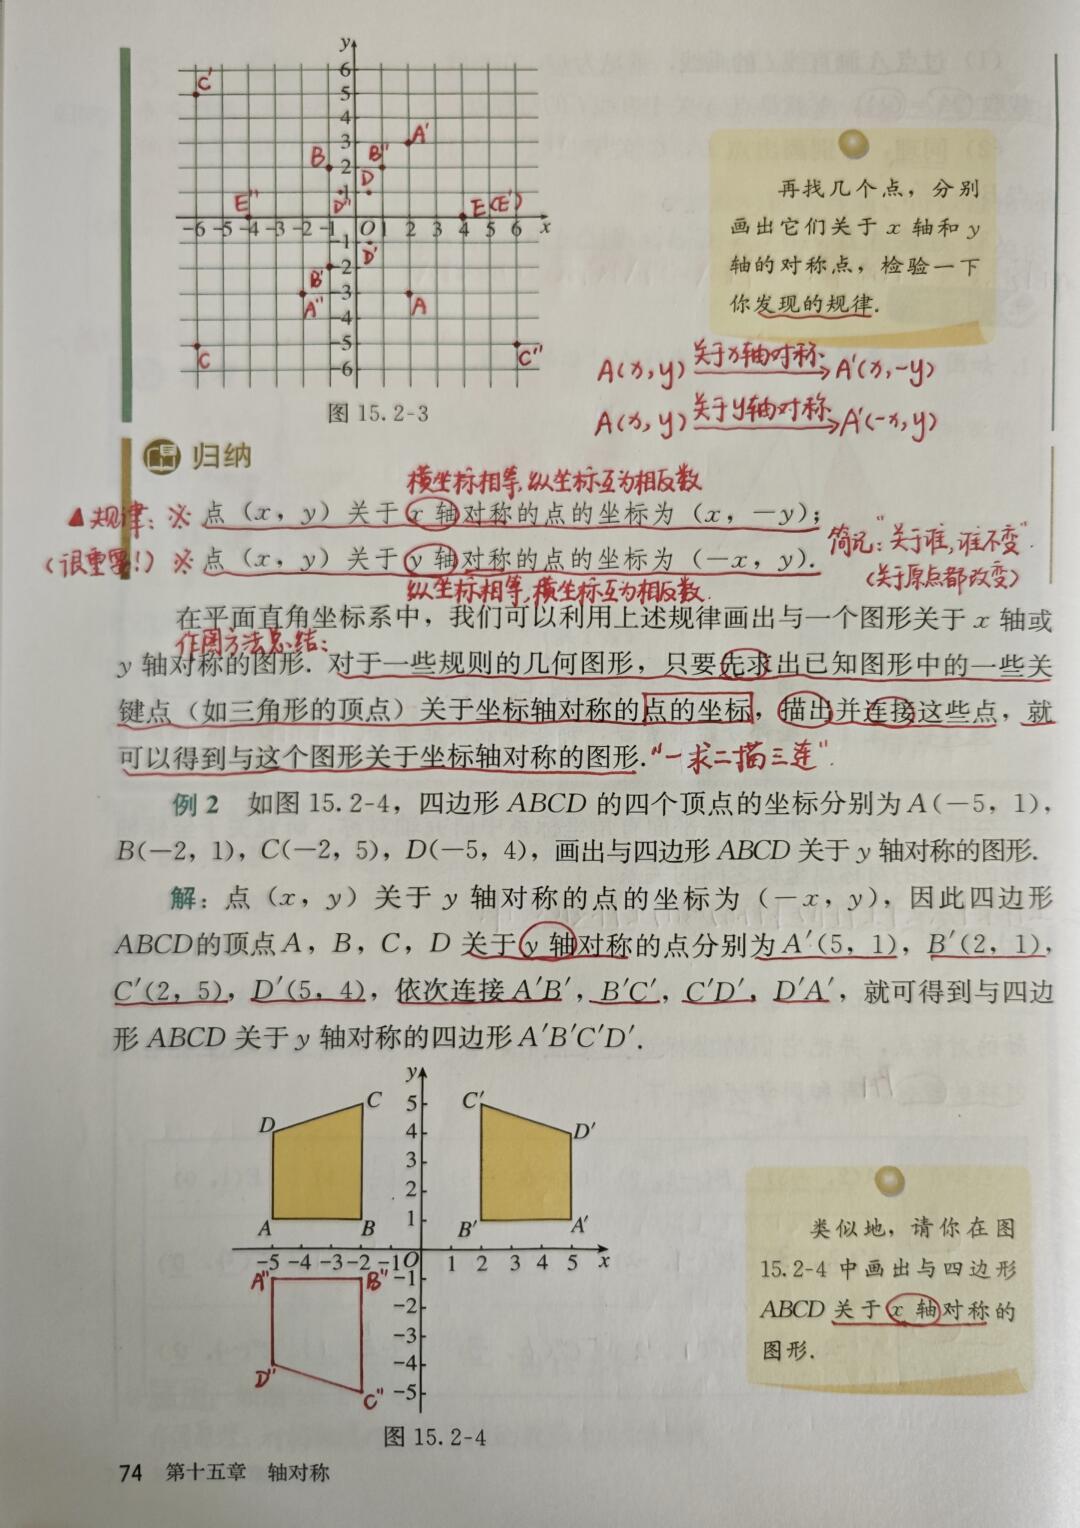 y
6
5
4
3
2
1
-6 -5 -4 -3 -2 -1 O 1 2 3 4 5 6 x
-1
-2
-3
-4
-5
-6
C'
A'
B
B"
D
D"
E"
E(E')
D'
B'
A"
A
C
C"
图 15.2-3
再找几个点，分别
画出它们关于 x 轴和 y
轴的对称点，检验一下
你发现的规律.
A(x,y) 关于x轴对称 A'(x,-y)
A(x,y) 关于y轴对称 A'(-x,y)
归纳
横坐标相等,纵坐标互为相反数
▲规律: ※ 点（x，y）关于 x 轴对称的点的坐标为（x，－y）;
(很重要!) ※ 点（x，y）关于 y 轴对称的点的坐标为（－x，y）.
简记:"关于谁,谁不变".
(关于原点都改变)
纵坐标相等,横坐标互为相反数.
在平面直角坐标系中，我们可以利用上述规律画出与一个图形关于 x 轴或
作图方法总结:
y 轴对称的图形. 对于一些规则的几何图形，只要先求出已知图形中的一些关
键点（如三角形的顶点）关于坐标轴对称的点的坐标，描出并连接这些点，就
可以得到与这个图形关于坐标轴对称的图形. "一求二描三连"
例 2 如图 15.2-4，四边形 ABCD 的四个顶点的坐标分别为 A(－5，1)，
B(－2，1)，C(－2，5)，D(－5，4)，画出与四边形 ABCD 关于 y 轴对称的图形.
解: 点（x，y）关于 y 轴对称的点的坐标为（－x，y），因此四边形
ABCD的顶点 A，B，C，D 关于 y 轴对称的点分别为 A′(5，1)，B′(2，1)，
C′(2，5)，D′(5，4)，依次连接 A′B′，B′C′，C′D′，D′A′，就可得到与四边
形 ABCD 关于 y 轴对称的四边形 A′B′C′D′.
y
5
4
3
2
1
-5 -4 -3 -2 -1 O 1 2 3 4 5 x
-1
-2
-3
-4
-5
D
C
A
B
C′
D′
B′
A′
A"
B"
D"
C"
图 15.2-4
类似地，请你在图
15.2-4 中画出与四边形
ABCD 关于 x 轴对称的
图形.
74 第十五章 轴对称